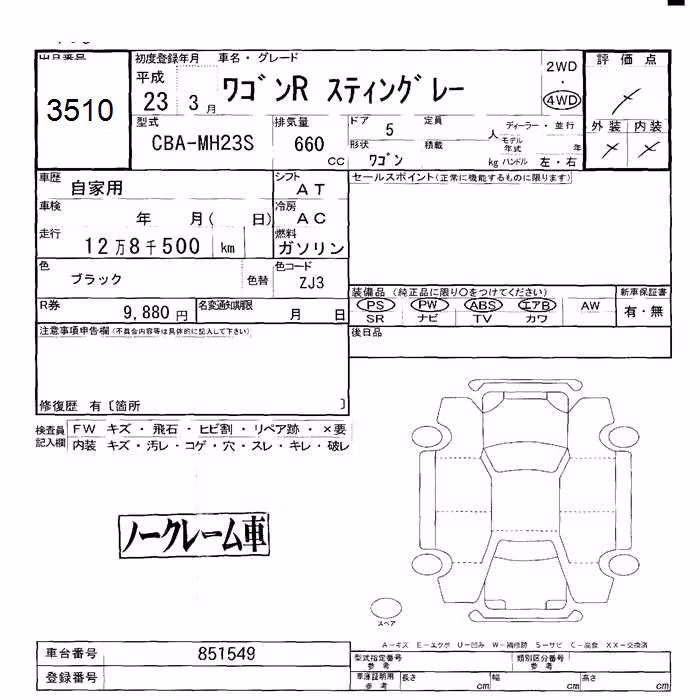 出品番号
3510
初度登録年月
平成
23 3月
車名・グレード
ワゴンR スティングレー
2WD
・
4WD
評価点
外装 内装
型式
CBA-MH23S
排気量
660
CC
ドア 5
定員 人
形状
ワゴン
積載 kg
ディーラー・並行
モデル年式 年
ハンドル 左・右
車歴
自家用
シフト
AT
車検
年 月( 日)
冷房
AC
走行
12万8千500 km
燃料
ガソリン
色
ブラック
色替
色コード
ZJ3
R券
9,880円
名変通知期限
月 日
セールスポイント(正常に機能するものに限ります)
装備品 (純正品に限り〇をつけてください)
PS PW ABS エアB AW
SR ナビ TV カワ
新車保証書
有・無
後日品
注意事項申告欄(不具合内容等は具体的に記入して下さい)
修復歴 有〔箇所 〕
検査員記入欄
FW キズ・飛石・ヒビ割・リペア跡・×要
内装 キズ・汚レ・コゲ・穴・スレ・キレ・破レ
ノークレーム車
スペア
A-キズ E-エクボ U-凹み W-補修跡 S-サビ C-腐食 XX-交換済
車台番号 851549
登録番号
型式指定番号
参考
類別区分番号
参考
車庫証明用
参考
長さ cm 幅 cm 高さ cm